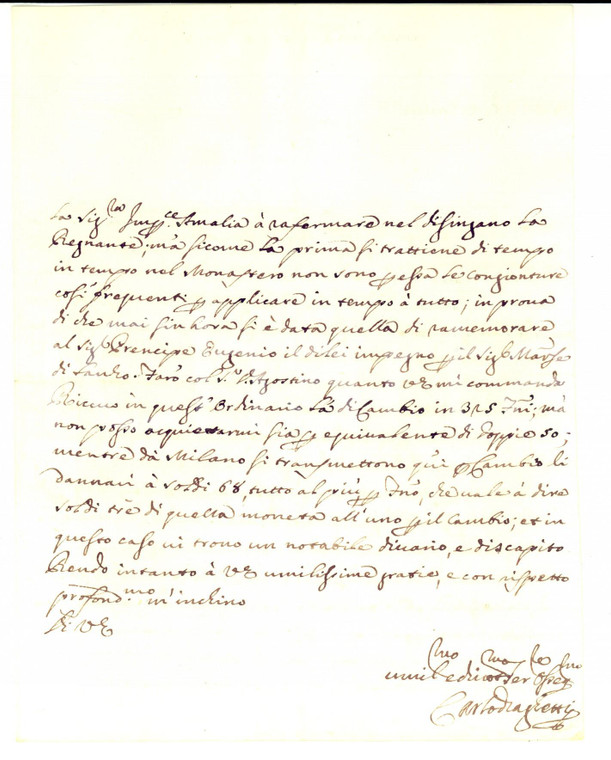 La Sig.ra Imp.ce Amalia à rafermare nel disingano la
Regnante; mà sicome la prima si trattiene di tempo
in tempo nel Monastero non sono p essa le congionture
così frequenti p applicare in tempo à tutto; in prova
di che mai sin hora si è data quella di ramemorare
al Sig.r Prencipe Eugenio il di lei impegno p il Sig.r March.se
di Farò col S.r Agostino quanto VE mi commanda
Ricevo in quest' Ordinario la di Cambio in 325 f.ni; mà
non posso acquietarmi sia p equivalente di doppie 50;
mentre dà Milano si transmettono qui p Cambio li
dannari à soldi 68 tutto al più p f.no, che vale à dire
soldi trè di quella moneta all'uno p il Cambio; et in
questo caso vi trovo un notabile divario, e discapito
Rendo intanto à VE umilissime gratie, e con rispetto
profond.mo m'inchino
Di VE
umil.mo e di ser
Carlo